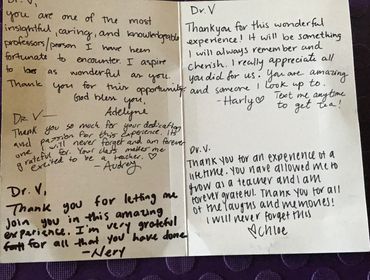 Dr. V,
you are one of the most
insightful, caring, and knowledgable
professors/person I have been
fortunate to encounter. I aspire
to be as wonderful as you.
Thank you for this opportunity
God bless you.
Adelyne
Dr. V—
Thank you so much for your dedication
and passion for this experience. It's
one I will never forget and am forever
grateful for. Your class makes me
excited to be a teacher. ♡
- Audrey
Dr. V,
Thank you for letting me
join you in this amazing
experience. I'm very grateful
for all that you have done.
- Nery
Dr. V
Thankyou for this wonderful
experience! It will be something
I will always remember and
cherish. I really appreciate all
you did for us. You are amazing
and someone I look up to.
- Harly ♡ Text me anytime
to get tea!
Dr. V.
Thank you for an experience of a
lifetime. You have allowed me to
grow as a teacher and I am
forever grateful. Thank you for all
of the laughs and memories!!
I will never forget this
♡ Chloe